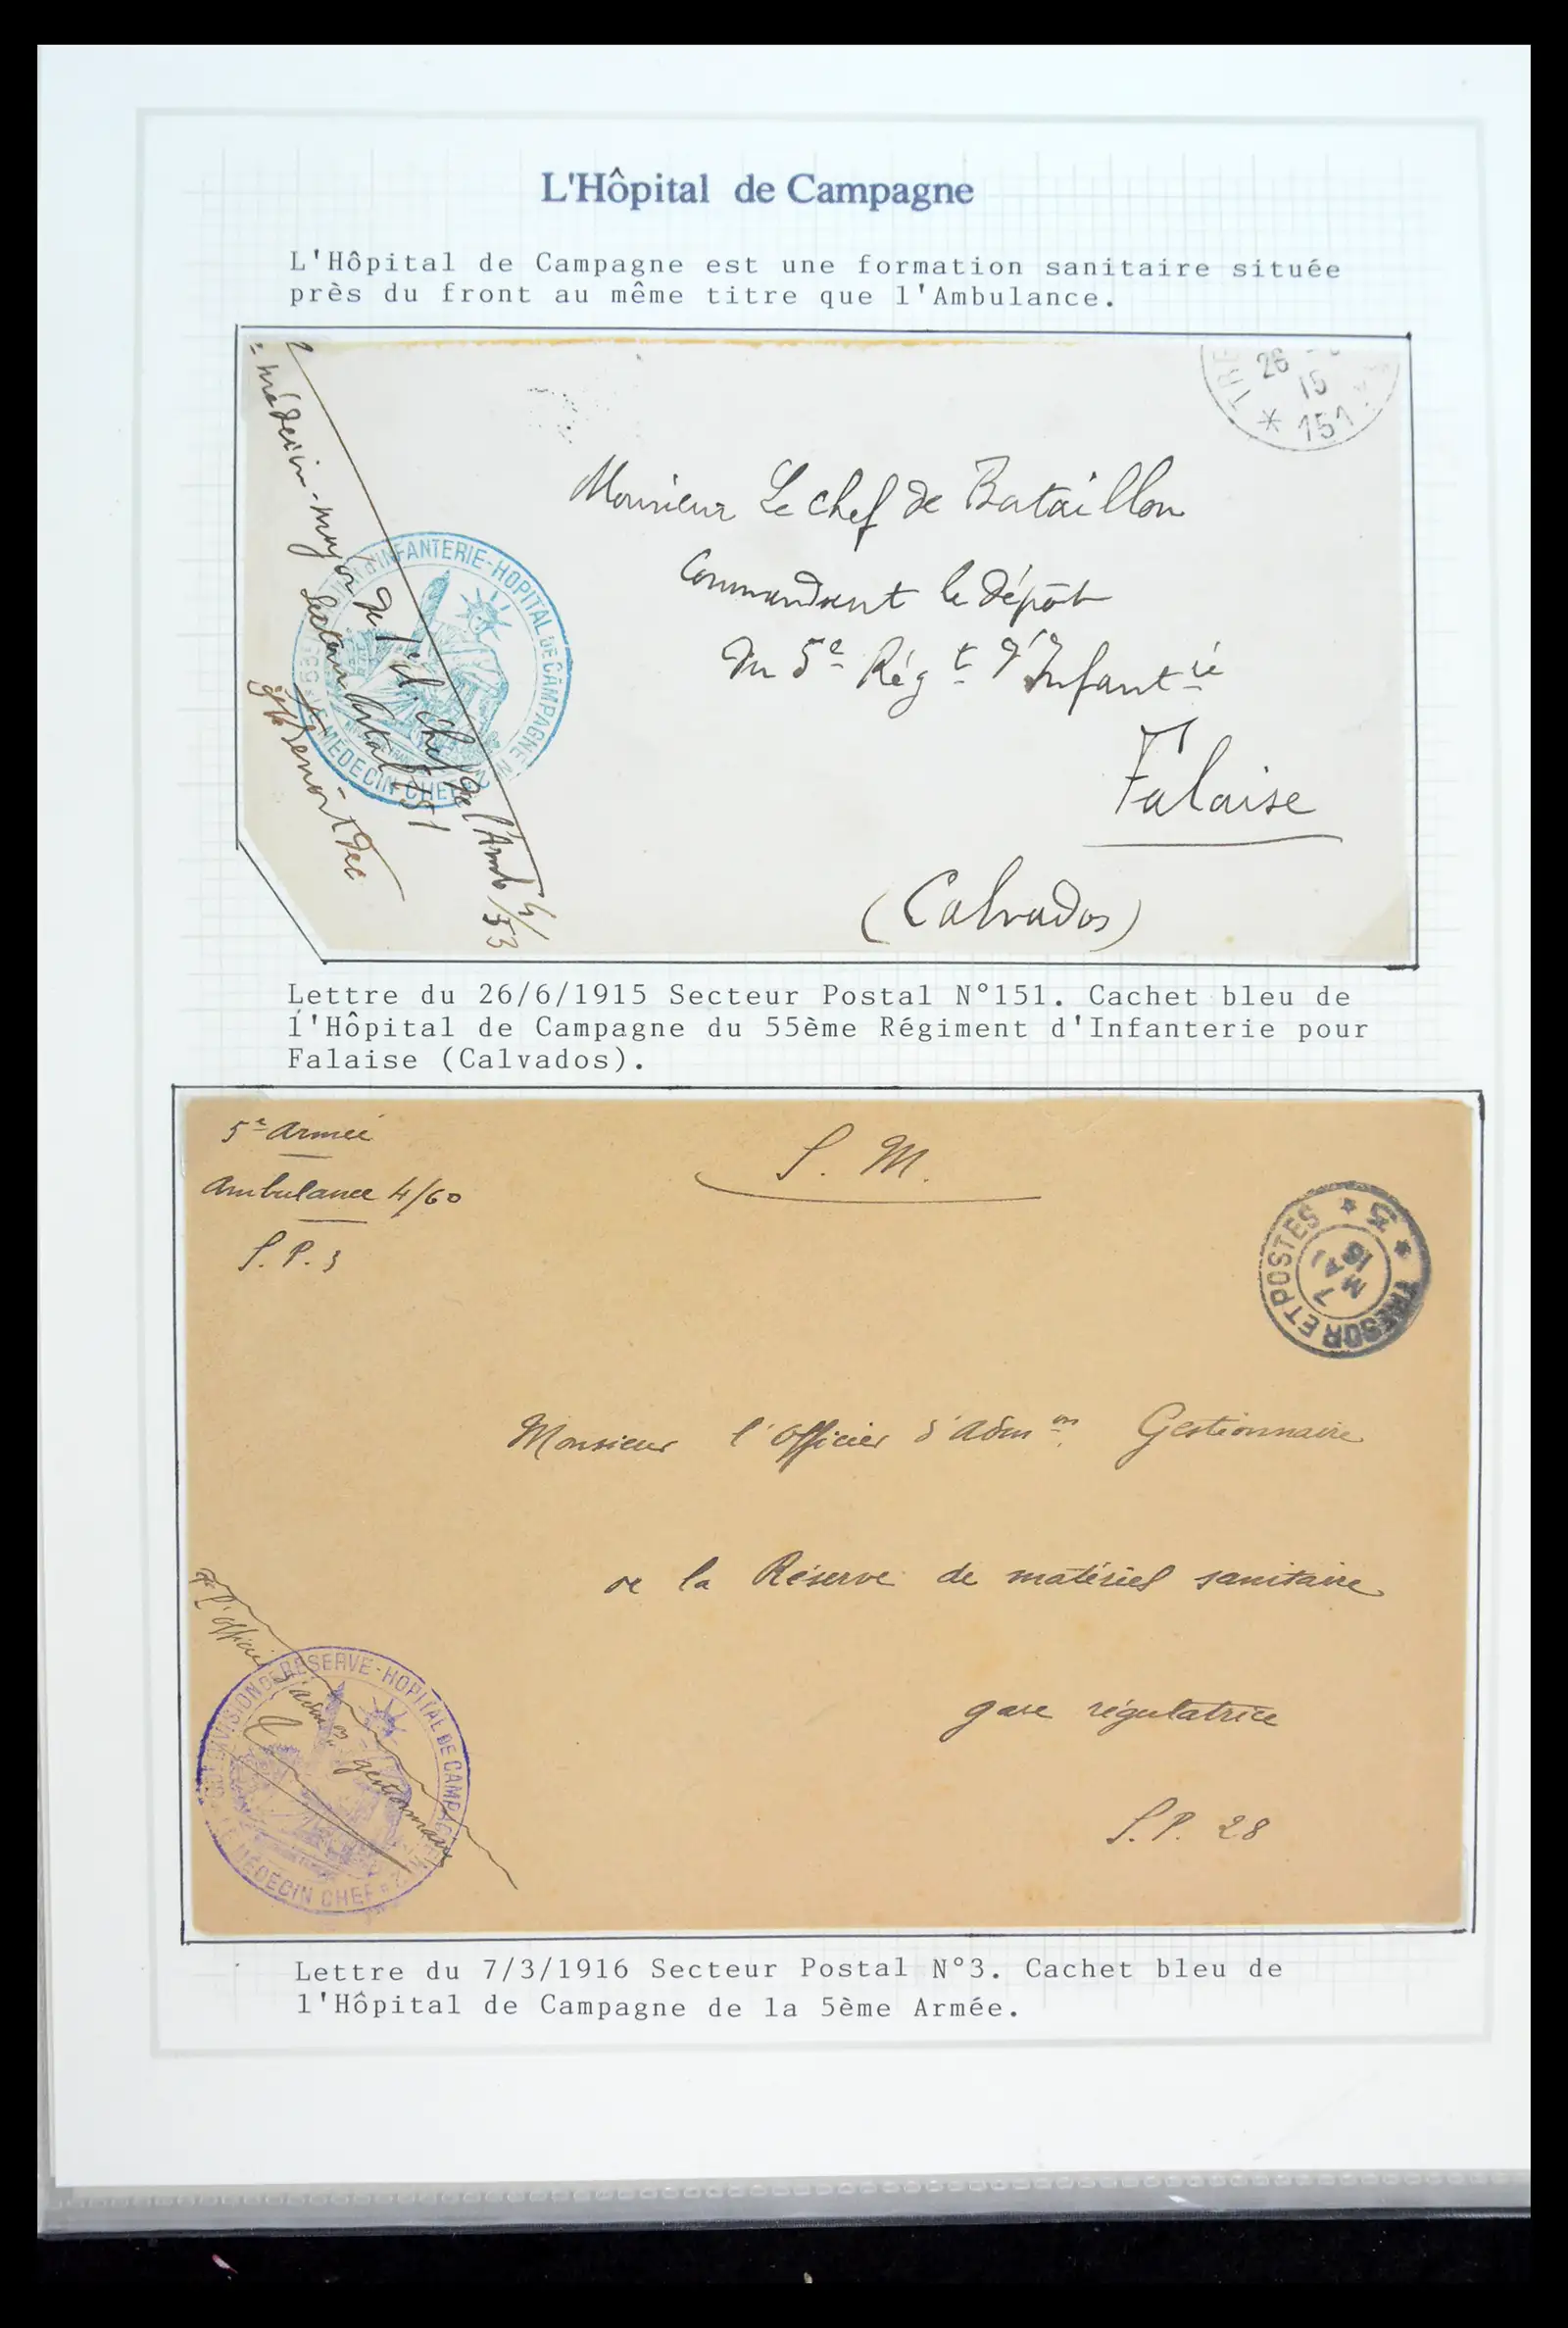 L'Hôpital de Campagne
L'Hôpital de Campagne est une formation sanitaire située
près du front au même titre que l'Ambulance.
26
15
* 151
TRE
Monsieur Le chef de Bataillon
Commandant le dépôt
du 5e Régt d'Infantrie
Falaise
(Calvados)
médecin-major de 1e cl. chef de l'Amb 4/53
Secteur Postal 151
D'INFANTERIE - HOPITAL DE CAMPAGNE N
LE MÉDECIN CHEF
Lettre du 26/6/1915 Secteur Postal N°151. Cachet bleu de
l'Hôpital de Campagne du 55ème Régiment d'Infanterie pour
Falaise (Calvados).
5e Armée
S. M.
Ambulance 4/60
S. P. 3
TRESOR ET POSTES * 3 *
7
16
Monsieur l'Officier d'Admon Gestionnaire
de la Réserve de matériel sanitaire
gare régulatrice
S.P. 28
l'officier d'admon gestionnaire
DIVISION DE RÉSERVE - HOPITAL DE CAMPAGNE
LE MÉDECIN CHEF
Lettre du 7/3/1916 Secteur Postal N°3. Cachet bleu de
l'Hôpital de Campagne de la 5ème Armée.